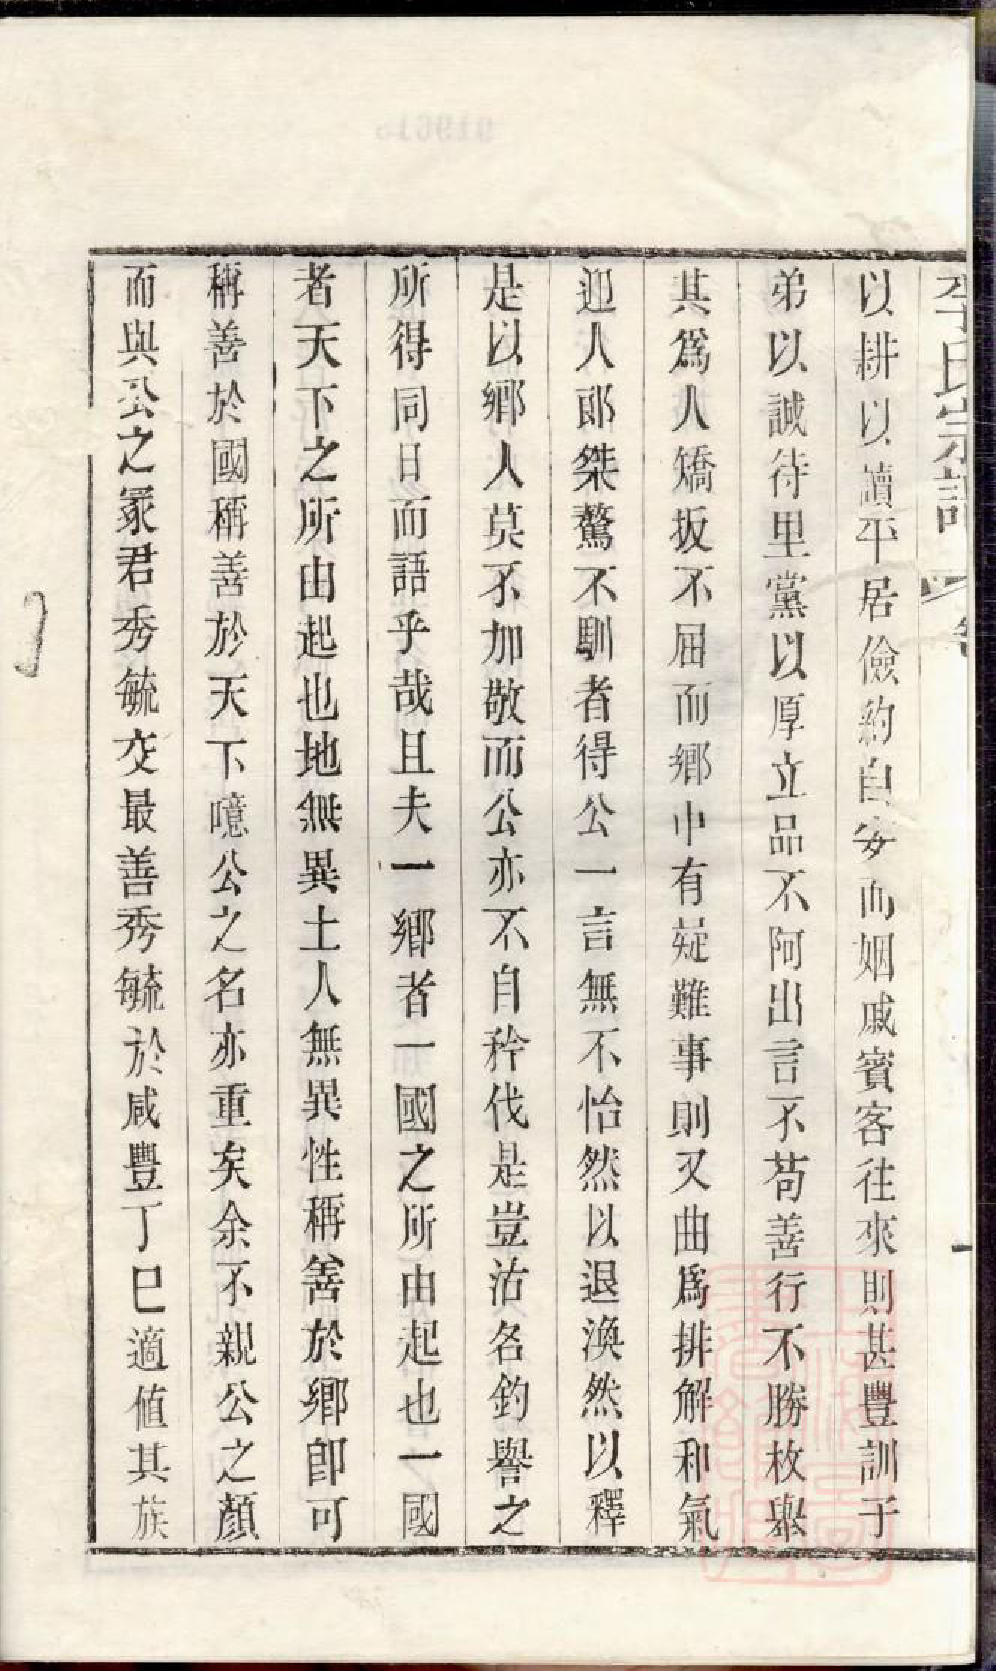 李氏宗譜
以耕以讀平居儉約自安而姻戚賓客往來則甚豐訓子
弟以誠待里黨以厚立品不阿出言不苟善行不勝枚舉
其爲人矯扳不屈而鄉中有疑難事則又曲爲排解和氣
迎人郎桀驁不馴者得公一言無不怡然以退渙然以釋
是以鄉人莫不加敬而公亦不自矜伐是豈沽名釣譽之
所得同日而語乎哉且夫一鄉者一國之所由起也一國
者天下之所由起也地無異土人無異性稱善於鄉卽可
稱善於國稱善於天下噫公之名亦重矣余不親公之顏
而與公之冢君秀毓交最善秀毓於咸豐丁巳適值其族